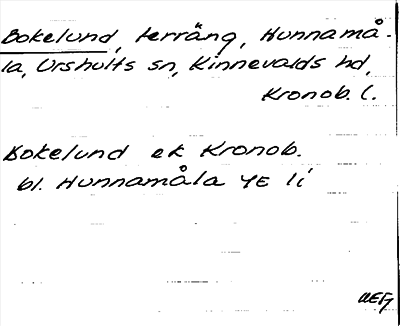 Bokelund, terräng, Hunnamå-
la, Urshults sn, Kinnevalds hd,
Kronob. l.
Bokelund ek Kronob.
bl. Hunnamåla YE li